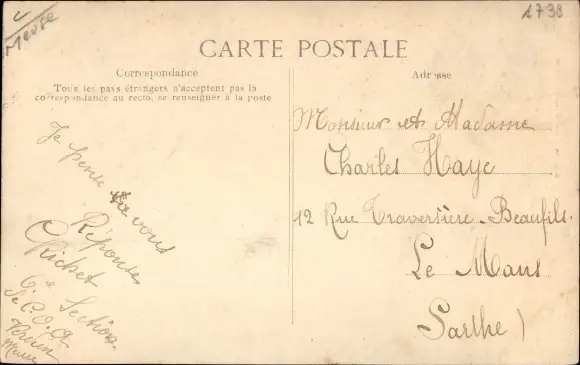 Meuse
1738
CARTE POSTALE
Correspondance
Tous les pays étrangers n'acceptent pas la
correspondance au recto, se renseigner à la poste
Adresse
Je pense à vous
Réponse
C Richet
6e Section
de C.O.A
Verdun
Meuse
Monsieur et Madame
Charles Haye
12 Rue Traversière-Beaufils.
Le Mans
Sarthe)